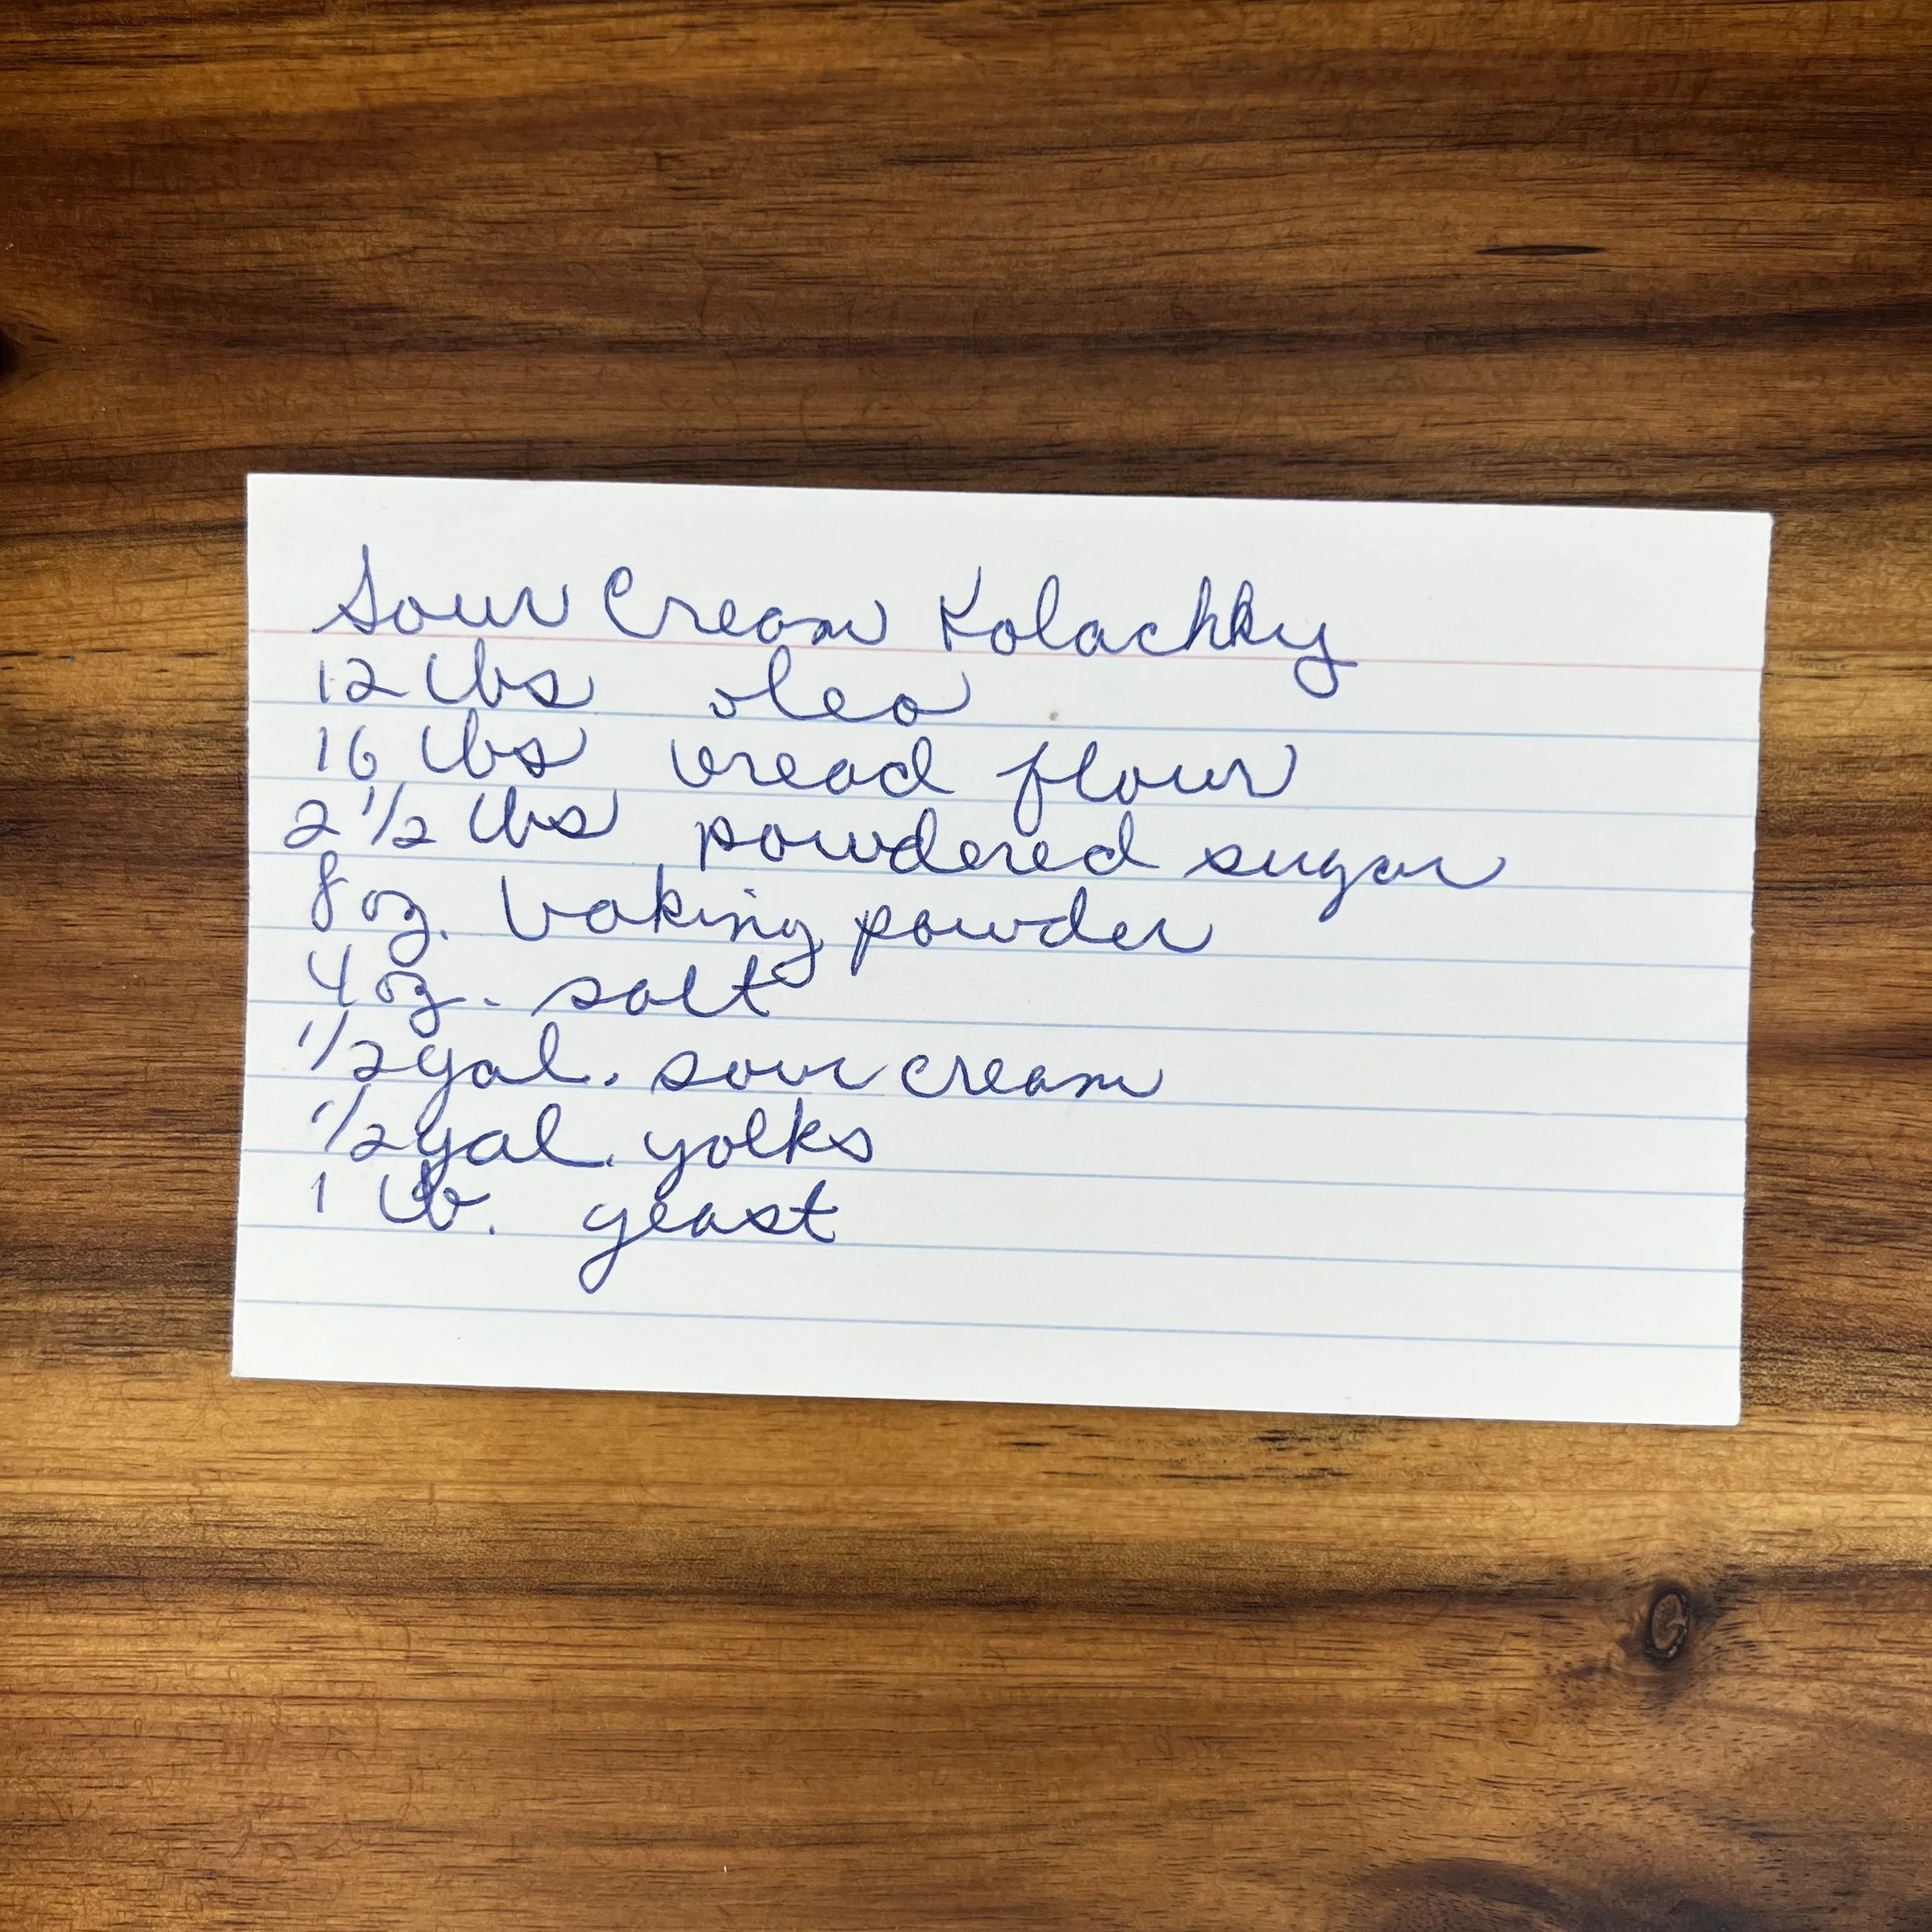 Sour Cream Kolachky
12 lbs oleo
16 lbs bread flour
2 1/2 lbs powdered sugar
8 oz. baking powder
4 oz. salt
1/2 gal. sour cream
1/2 gal. yolks
1 lb. yeast